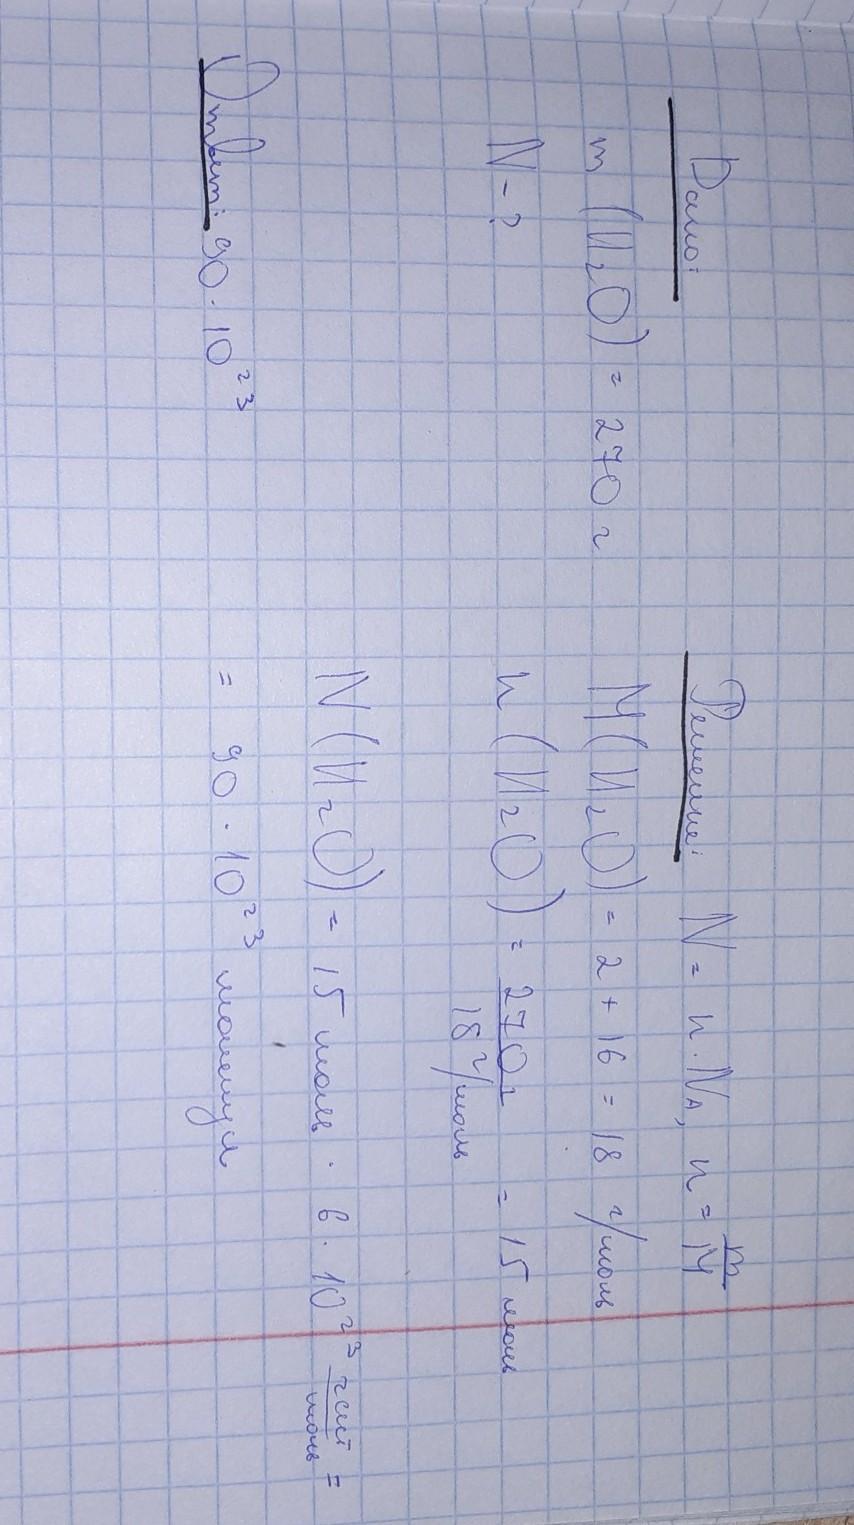 Дано:
m (H₂O) = 270 г
N - ?
Решение: N = n · Nₐ, n = m/M
M(H₂O) = 2 + 16 = 18 г/моль
n (H₂O) = 270 г / 18 г/моль = 15 моль
N (H₂O) = 15 моль · 6 · 10²³ част/моль =
= 90 · 10²³ молекул
Ответ: 90 · 10²³